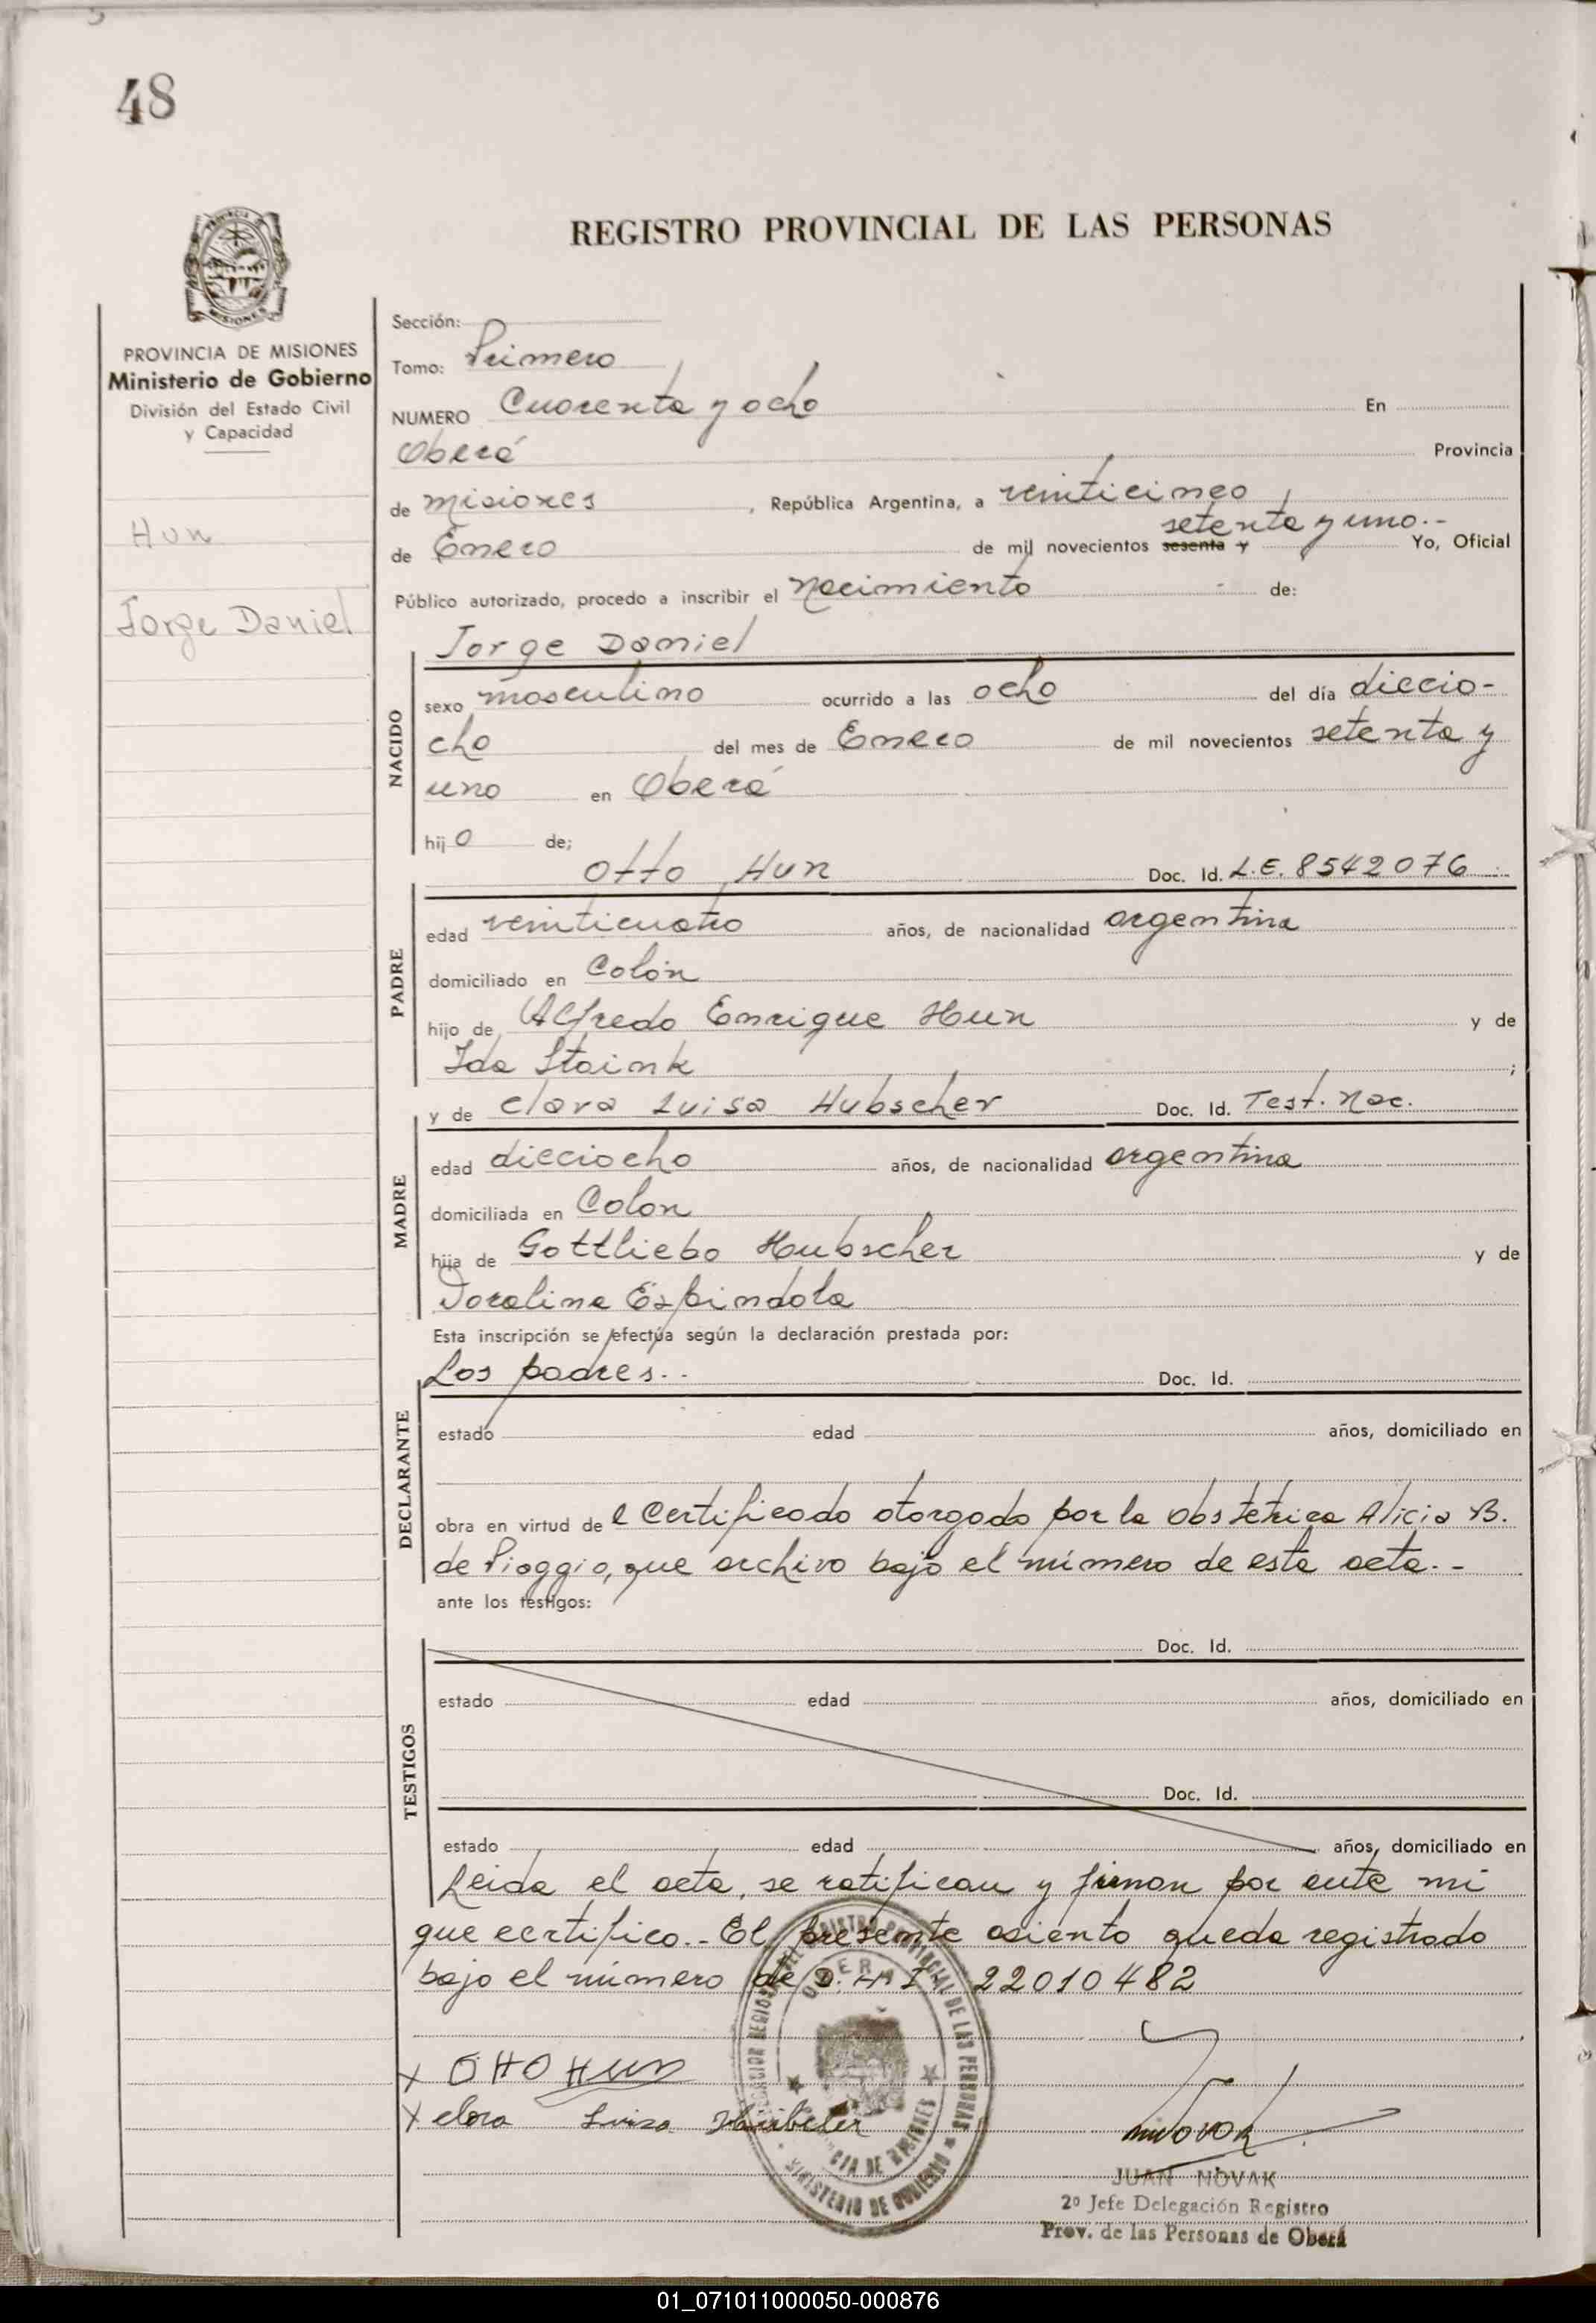 48
REGISTRO PROVINCIAL DE LAS PERSONAS
PROVINCIA DE MISIONES
Ministerio de Gobierno
División del Estado Civil
y Capacidad
Hun
Jorge Daniel
Sección:
Tomo: Primero
NUMERO Cuarenta y ocho En
Oberá Provincia
de Misiones, República Argentina, a veinticinco
setenta y uno.-
de Enero de mil novecientos sesenta y Yo, Oficial
Público autorizado, procedo a inscribir el Nacimiento de:
Jorge Daniel
NACIDO
sexo masculino ocurrido a las ocho del día diecio-
cho del mes de Enero de mil novecientos setenta y
uno en Oberá
hijo de;
Otto Hun Doc. Id. L.E. 8542076
PADRE
edad veinticuatro años, de nacionalidad argentina
domiciliado en Colón
hijo de Alfredo Enrique Hun y de
Ida Staink ;
y de Clara Luisa Hubscher Doc. Id. Test. Nac.
MADRE
edad dieciocho años, de nacionalidad argentina
domiciliada en Colon
hija de Gottliebo Hubscher y de
Doralina Espindola
Esta inscripción se efectúa según la declaración prestada por:
Los padres.. Doc. Id.
DECLARANTE
estado edad años, domiciliado en
obra en virtud de l Certificado otorgado por la Obstetrica Alicia B.
de Pioggio, que archivo bajo el número de esta acta.-
ante los testigos:
Doc. Id.
TESTIGOS
estado edad años, domiciliado en
Doc. Id.
estado edad años, domiciliado en
Leida el acta, se ratifican y firman por ante mi
que certifico.- El presente asiento queda registrado
bajo el número de D.N.I 22010482
x Otto Hun
x Clara Luisa
MNovak
JUAN NOVAK
2º Jefe Delegación Registro
Prov. de las Personas de Oberá
01_071011000050-000876